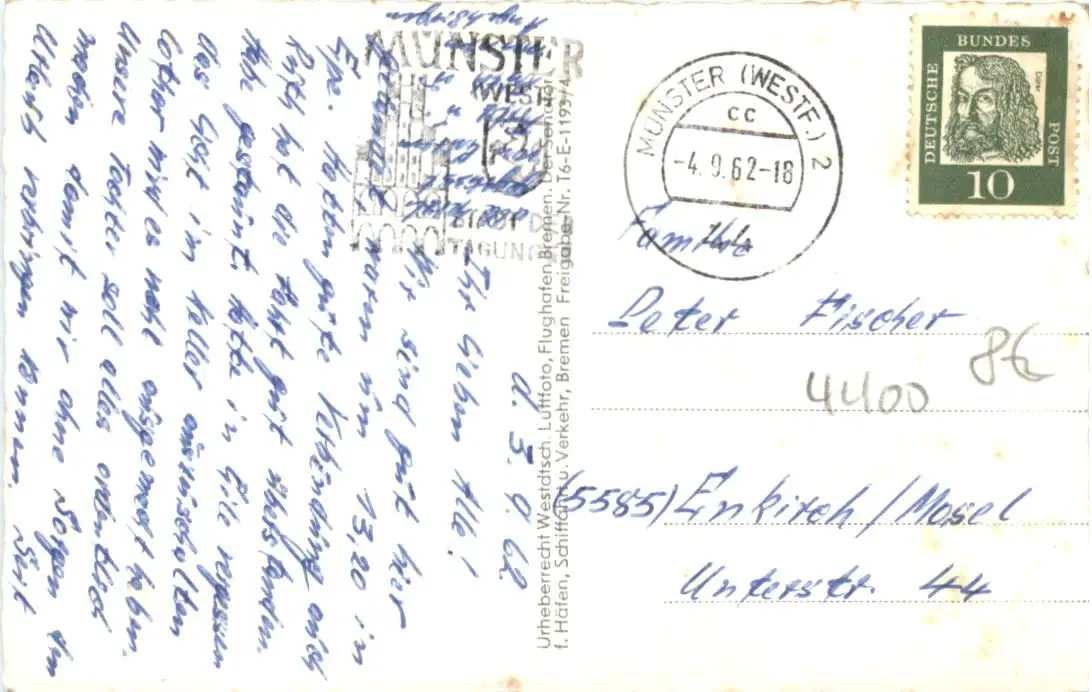 d. 3.9.62.
Ihr lieben All!
Wir sind gut hier
waren um 13,20 in
Epe. Hatten gute Verbindung auch
Ruth hat die Fahrt gut überstanden.
Ich gestaunt. hatte in Eile vergessen
das Licht in Keller auszuschalten
Lothar wird es wohl ausgemacht haben.
Unsere Tochter soll alles ordentlich
machen damit wir ohne Sorgen den
Urlaub verbringen können. Seid
Angehörigen
MÜNSTER
(WESTF
STADT DER
TAGUNGEN
Urheberrecht Westdtsch. Luftfoto, Flughafen Bremen. Der Senator
f. Häfen, Schiffahrt u. Verkehr, Bremen Freigabe-Nr. 16-E-1193/4
MÜNSTER (WESTF.) 2
CC
-4.9.62-18
DEUTSCHE
BUNDES
POST
Dürer
10
Familie
Peter Fischer
8€
4400
(5585) Enkirch/Mosel
Unterstr. 44